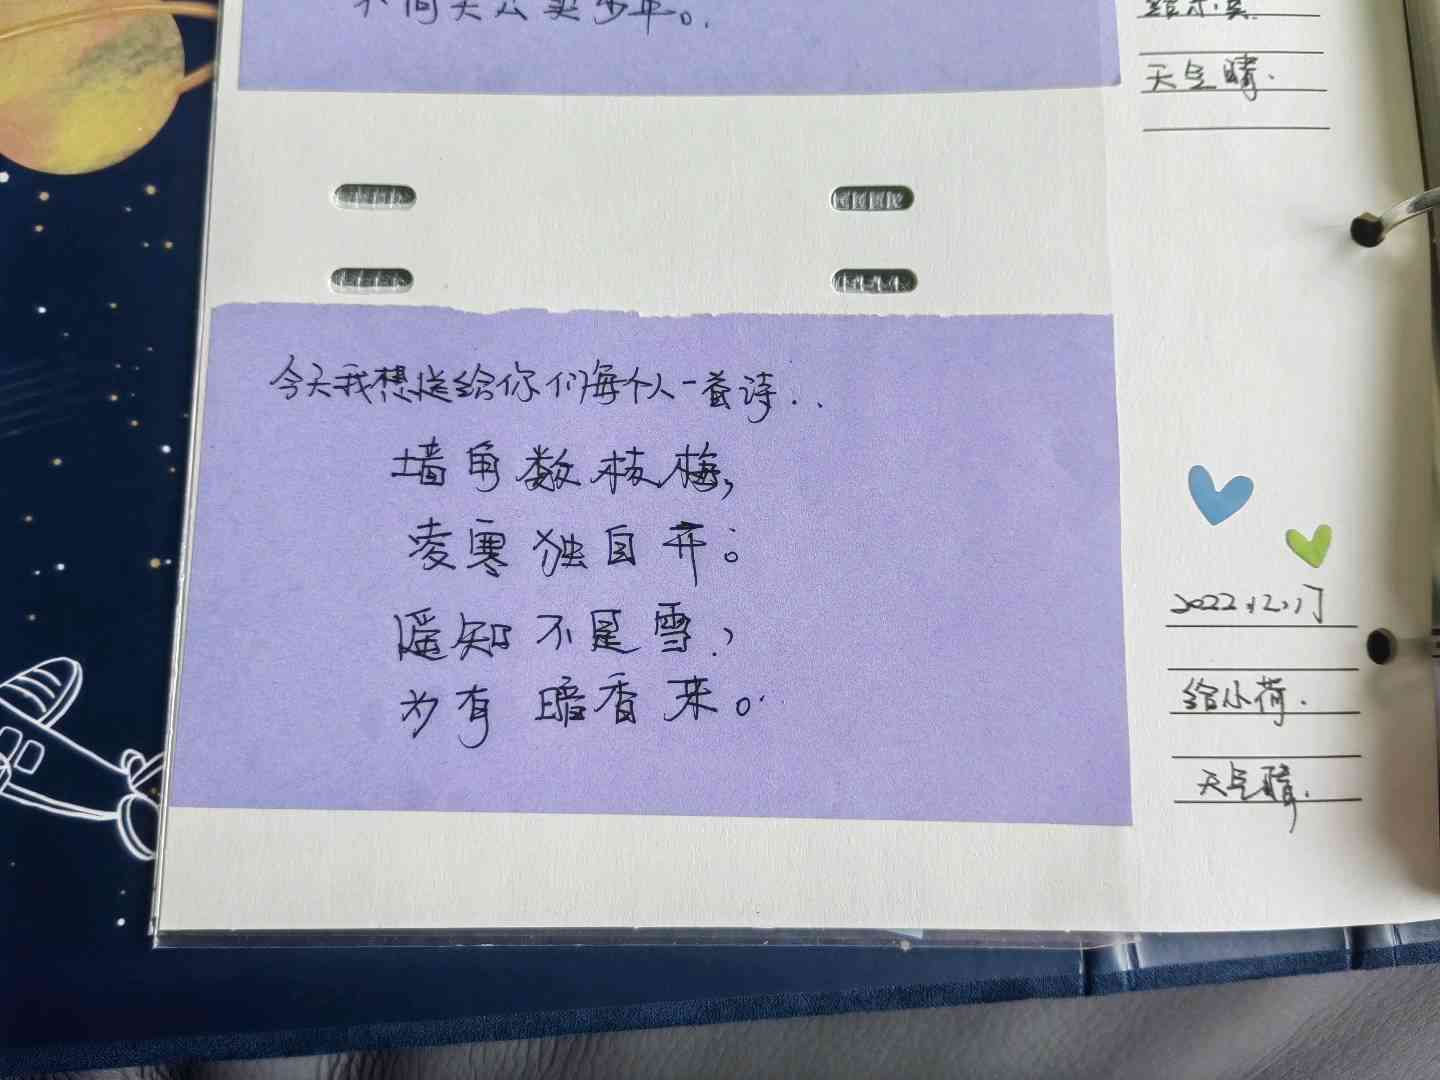 不向天公买少年。
天气晴.
今天我想送给你们每个人一首诗..
墙角数枝梅,
凌寒独自开。
遥知不是雪,
为有暗香来。
2022.12.17
给小荷.
天气晴.